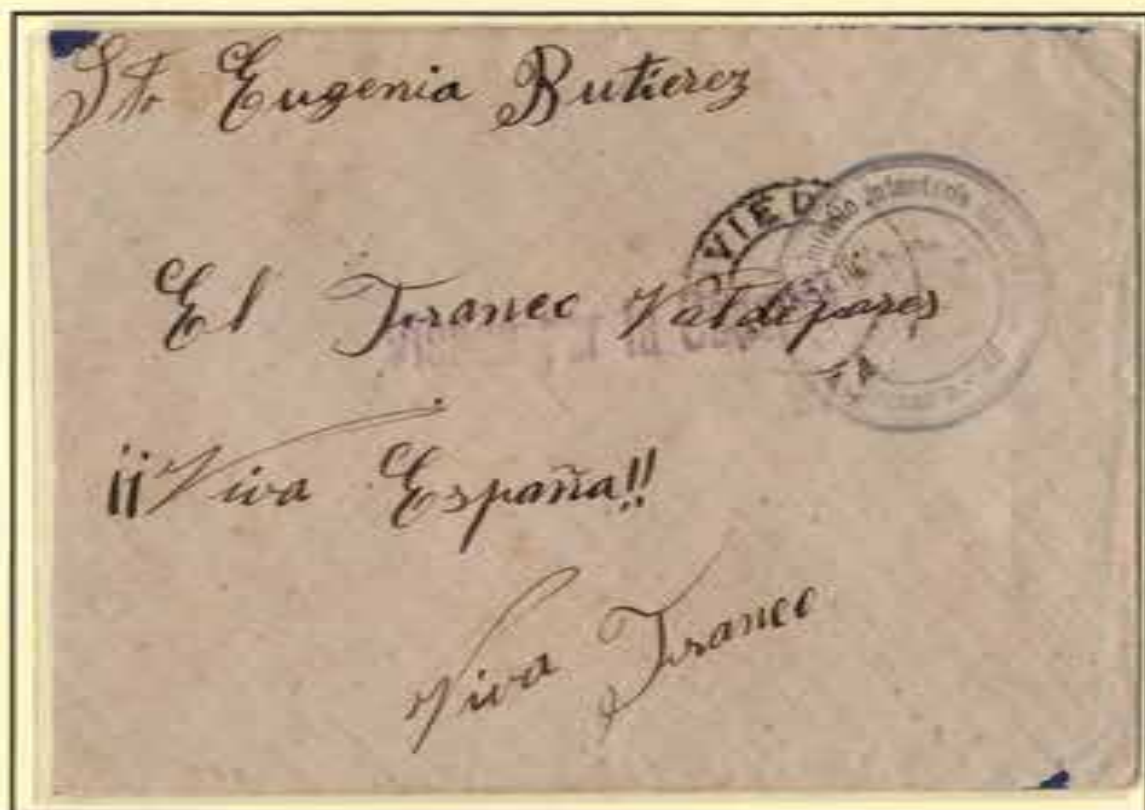 Sta Eugenia Butierez
OVIEDO
Infantería
El Franco Valdepares
¡¡Viva España!!
Viva Franco